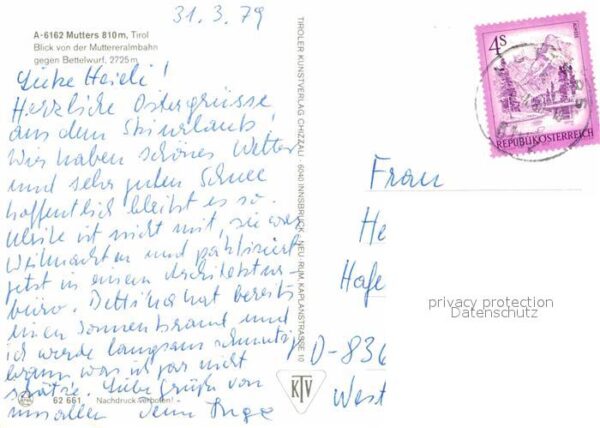 31.3.79
A-6162 Mutters 810 m, Tirol
Blick von der Muttereralmbahn
gegen Bettelwurf, 2725 m
Liebe Heidi!
Herzliche Ostergrüsse
aus dem Skiurlaub!
Wir haben schönes Wetter
und sehr guten Schnee
hoffentlich bleibt es so.
Ulrike ist nicht mit, sie war
Weihnachten und praktiziert
jetzt in einem Architektur-
büro. Bettina hat bereits
einen Sonnenbrand und
ich werde langsam schmutzig
braun was ich gar nicht
schätze. Liebe Grüße von
uns allen Deine Inge
62 661 Nachdruck verboten!
TIROLER KUNSTVERLAG CHIZZALI · 6040 INNSBRUCK - NEU-RUM, KAPLANSTRASSE 10
KTV
4S
REPUBLIK ÖSTERREICH
Frau
He
Hafe
D-836
West
privacy protection
Datenschutz